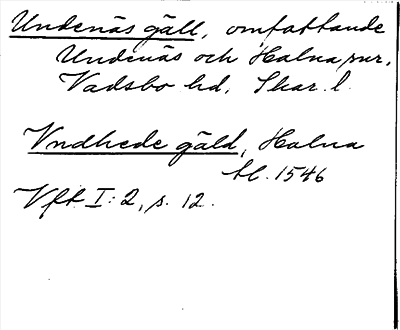 Undenäs gäll, omfattande
Undenäs och Halna snr,
Vadsbo hd, Skar. l.
Vndhede gäld, Halna
bl. 1546
Vft I: 2, s. 12.